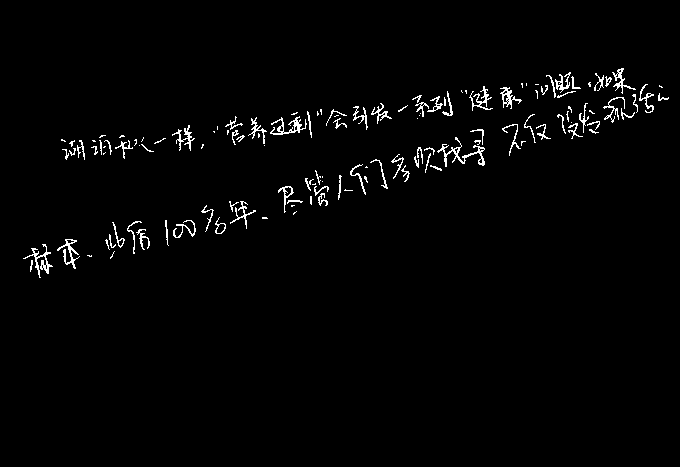 湖泊和人一样，“营养过剩”会引发一系列“健康”问题。如果
标本、此后100多年、尽管人们多次找寻不仅没给现活